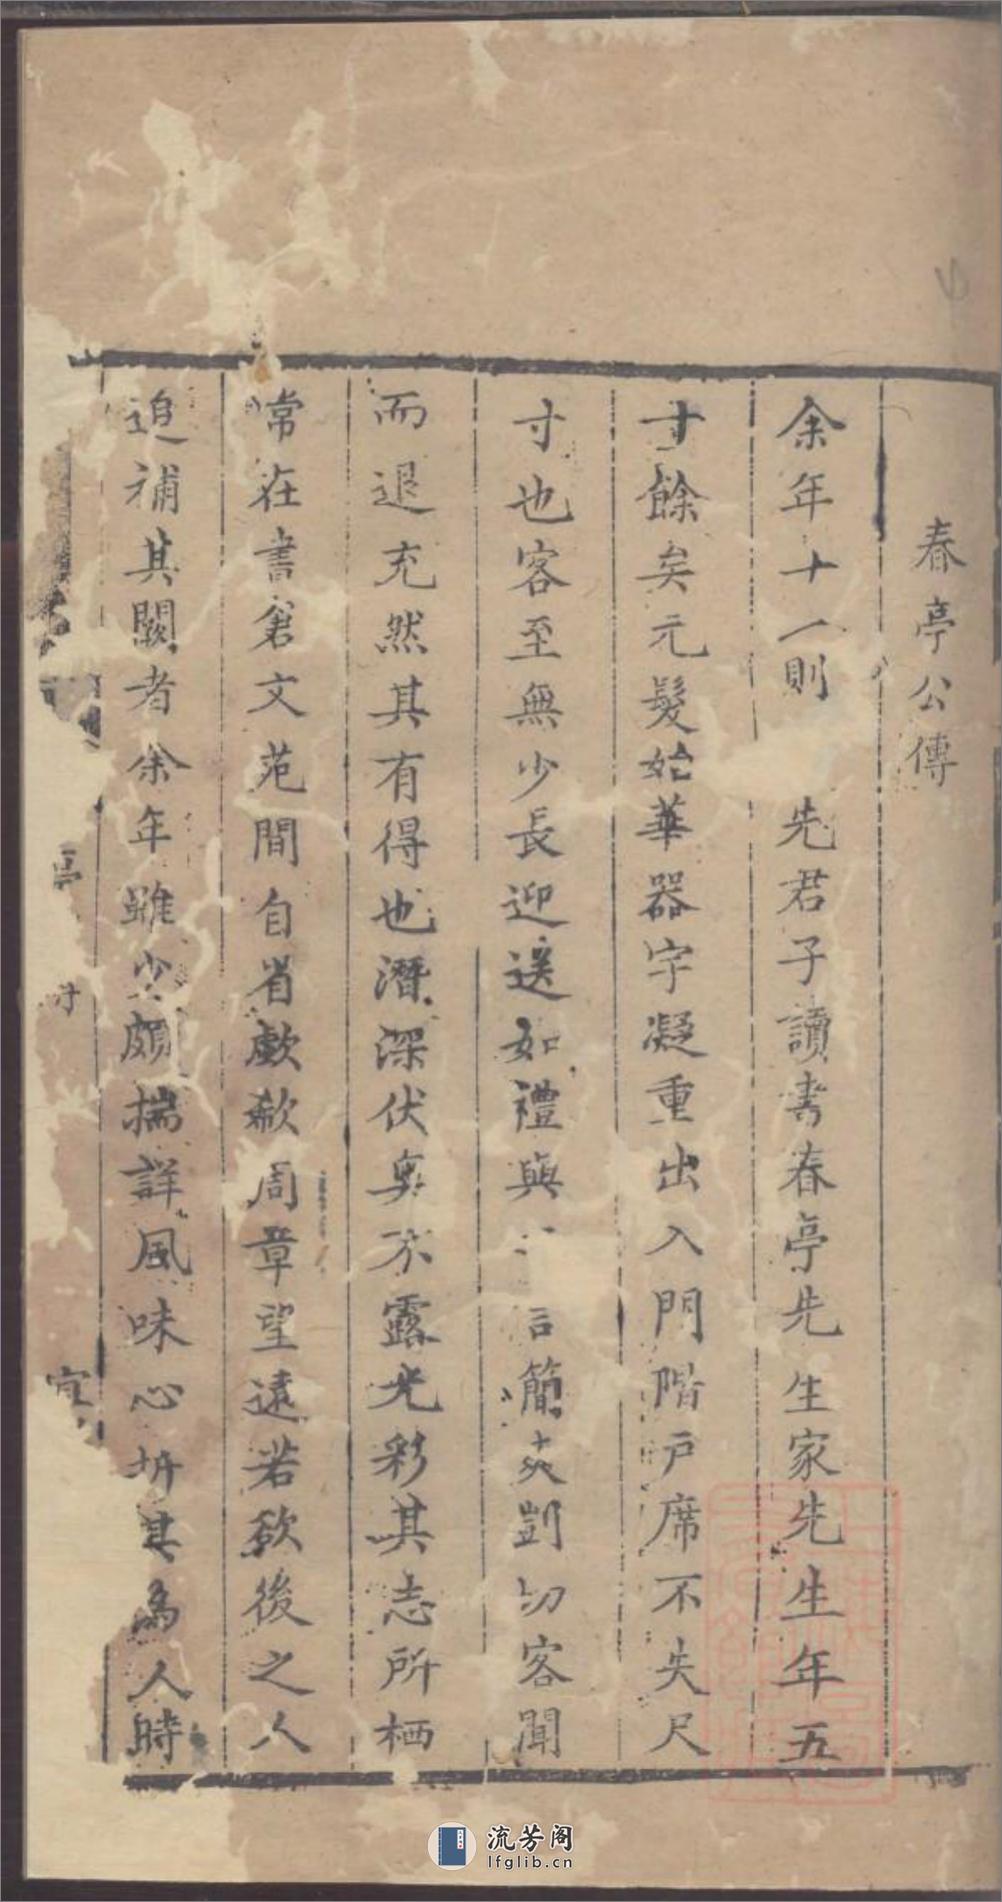 春亭公傳
余年十一則 先君子讀書春亭先生家先生年五
十餘矣元髮始華器宇凝重出入門階戶席不失尺
寸也客至無少長迎送如禮與 言簡爽剴切客聞
而退充然其有得也潛深伏奧不露光彩其志所栖
常在書倉文苑間自省歔欷周章望遠若欲後之人
追補其闕者余年雖少頗揣詳風味心折其為人時
亭
宜
流芳阁
lfglib.cn